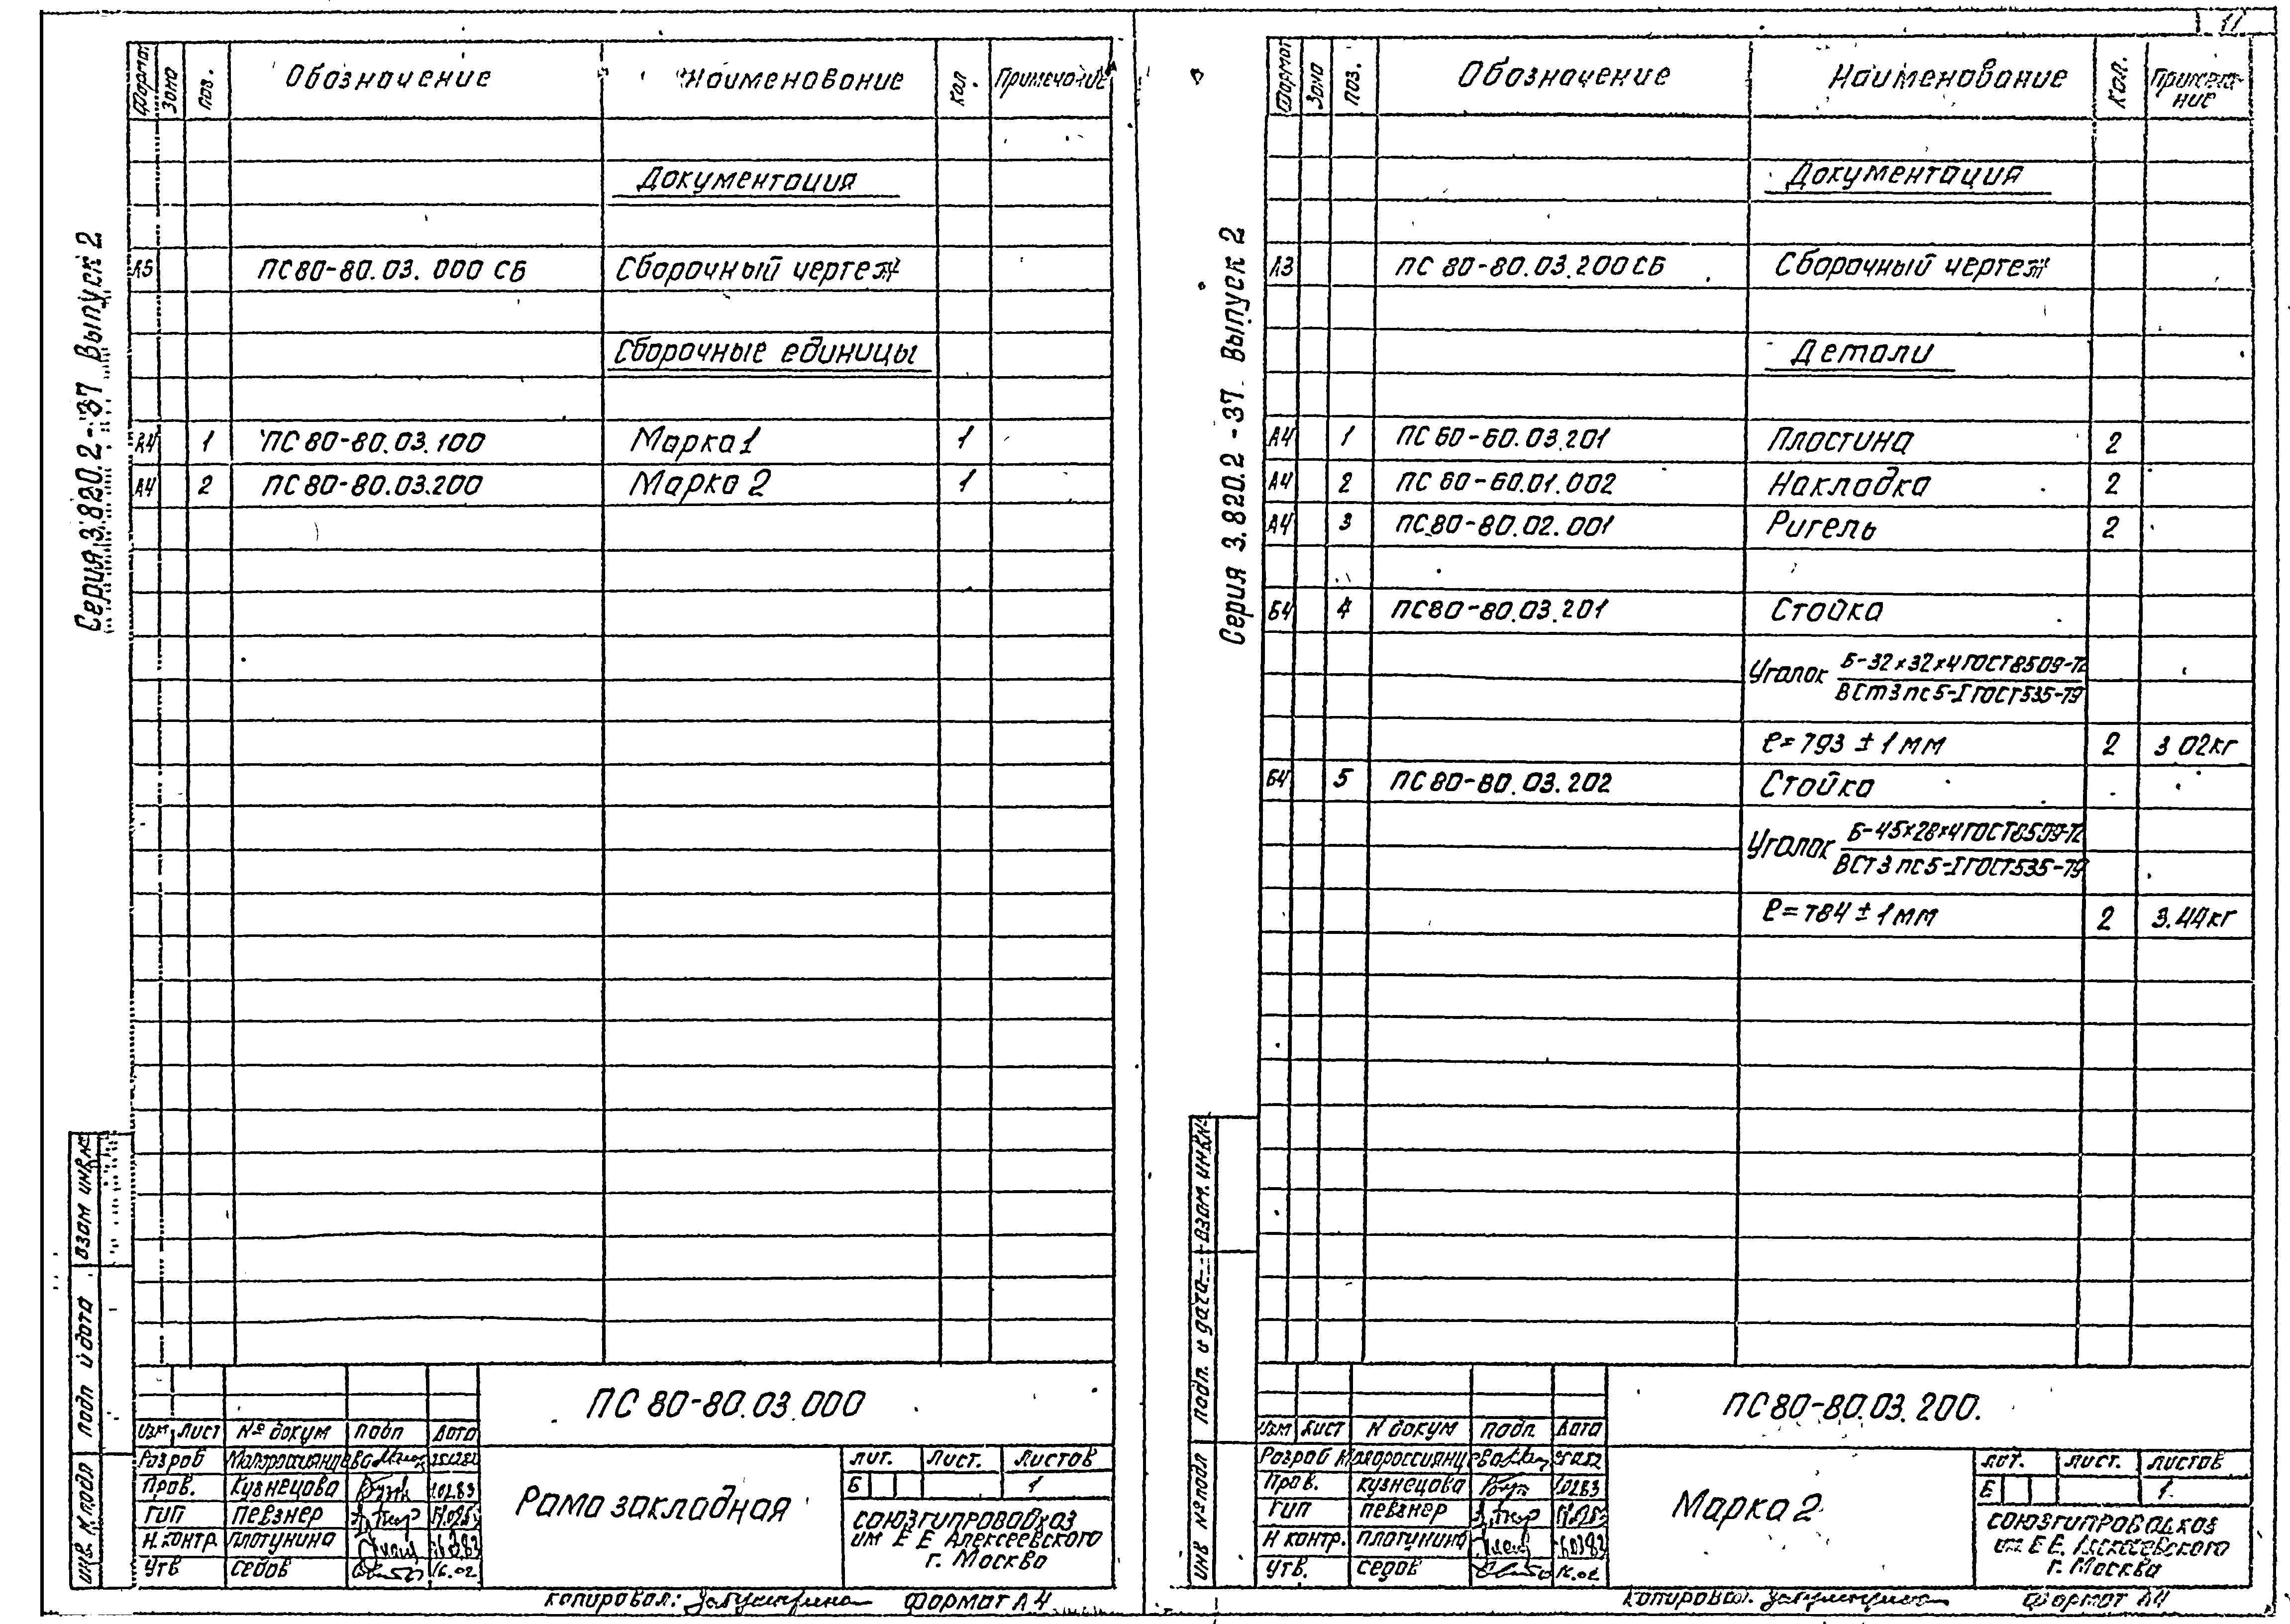 11
Серия 3.820.2-37 Выпуск 2
Формат Зона Поз. Обозначение Наименование Кол. Примечание
Документация
А3 ПС 80-80.03.000 СБ Сборочный чертеж
Сборочные единицы
А4 1 ПС 80-80.03.100 Марка 1 1
А4 2 ПС 80-80.03.200 Марка 2 1
Взам инв №
Подп и дата
Инв. № подл
ПС 80-80.03.000
Изм Лист № докум Подп Дата
Разраб Малороссиянцева
Пров. Кузнецова
ГИП Певзнер
Н.контр Плотунина
Утв Седов 16.02
Рама закладная
Лит. Лист. Листов
Б 1
Союзгипроводхоз
им Е Е Алексеевского
г. Москва
Копировал: Формат А4
Серия 3.820.2-37 Выпуск 2
Формат Зона Поз. Обозначение Наименование Кол. Примеча-
ние
Документация
А3 ПС 80-80.03.200 СБ Сборочный чертеж
Детали
А4 1 ПС 60-60.03.201 Пластина 2
А4 2 ПС 60-60.01.002 Накладка 2
А4 3 ПС 80-80.02.001 Ригель 2
Б4 4 ПС 80-80.03.201 Стойка
Уголок Б-32×32×4 ГОСТ 8509-72
ВСт3пс5-I ГОСТ 535-79
ℓ=793 ± 1 мм 2 3.02кг
Б4 5 ПС 80-80.03.202 Стойка
Уголок Б-45×28×4 ГОСТ 8509-72
ВСт3пс5-I ГОСТ 535-79
ℓ=784 ± 1 мм 2 3.44кг
Взам. инв №
Подп. и дата
Инв № подл
ПС 80-80.03.200.
Изм Лист N докум Подп. Дата
Разраб Малороссиянцева
Пров. Кузнецова
ГИП Певзнер
Н контр. Плотунина
Утв. Седов 16.02
Марка 2
Лит. Лист. Листов
Б 1
Союзгипроводхоз
им Е Е. Алексеевского
г. Москва
Копировал. Формат А4